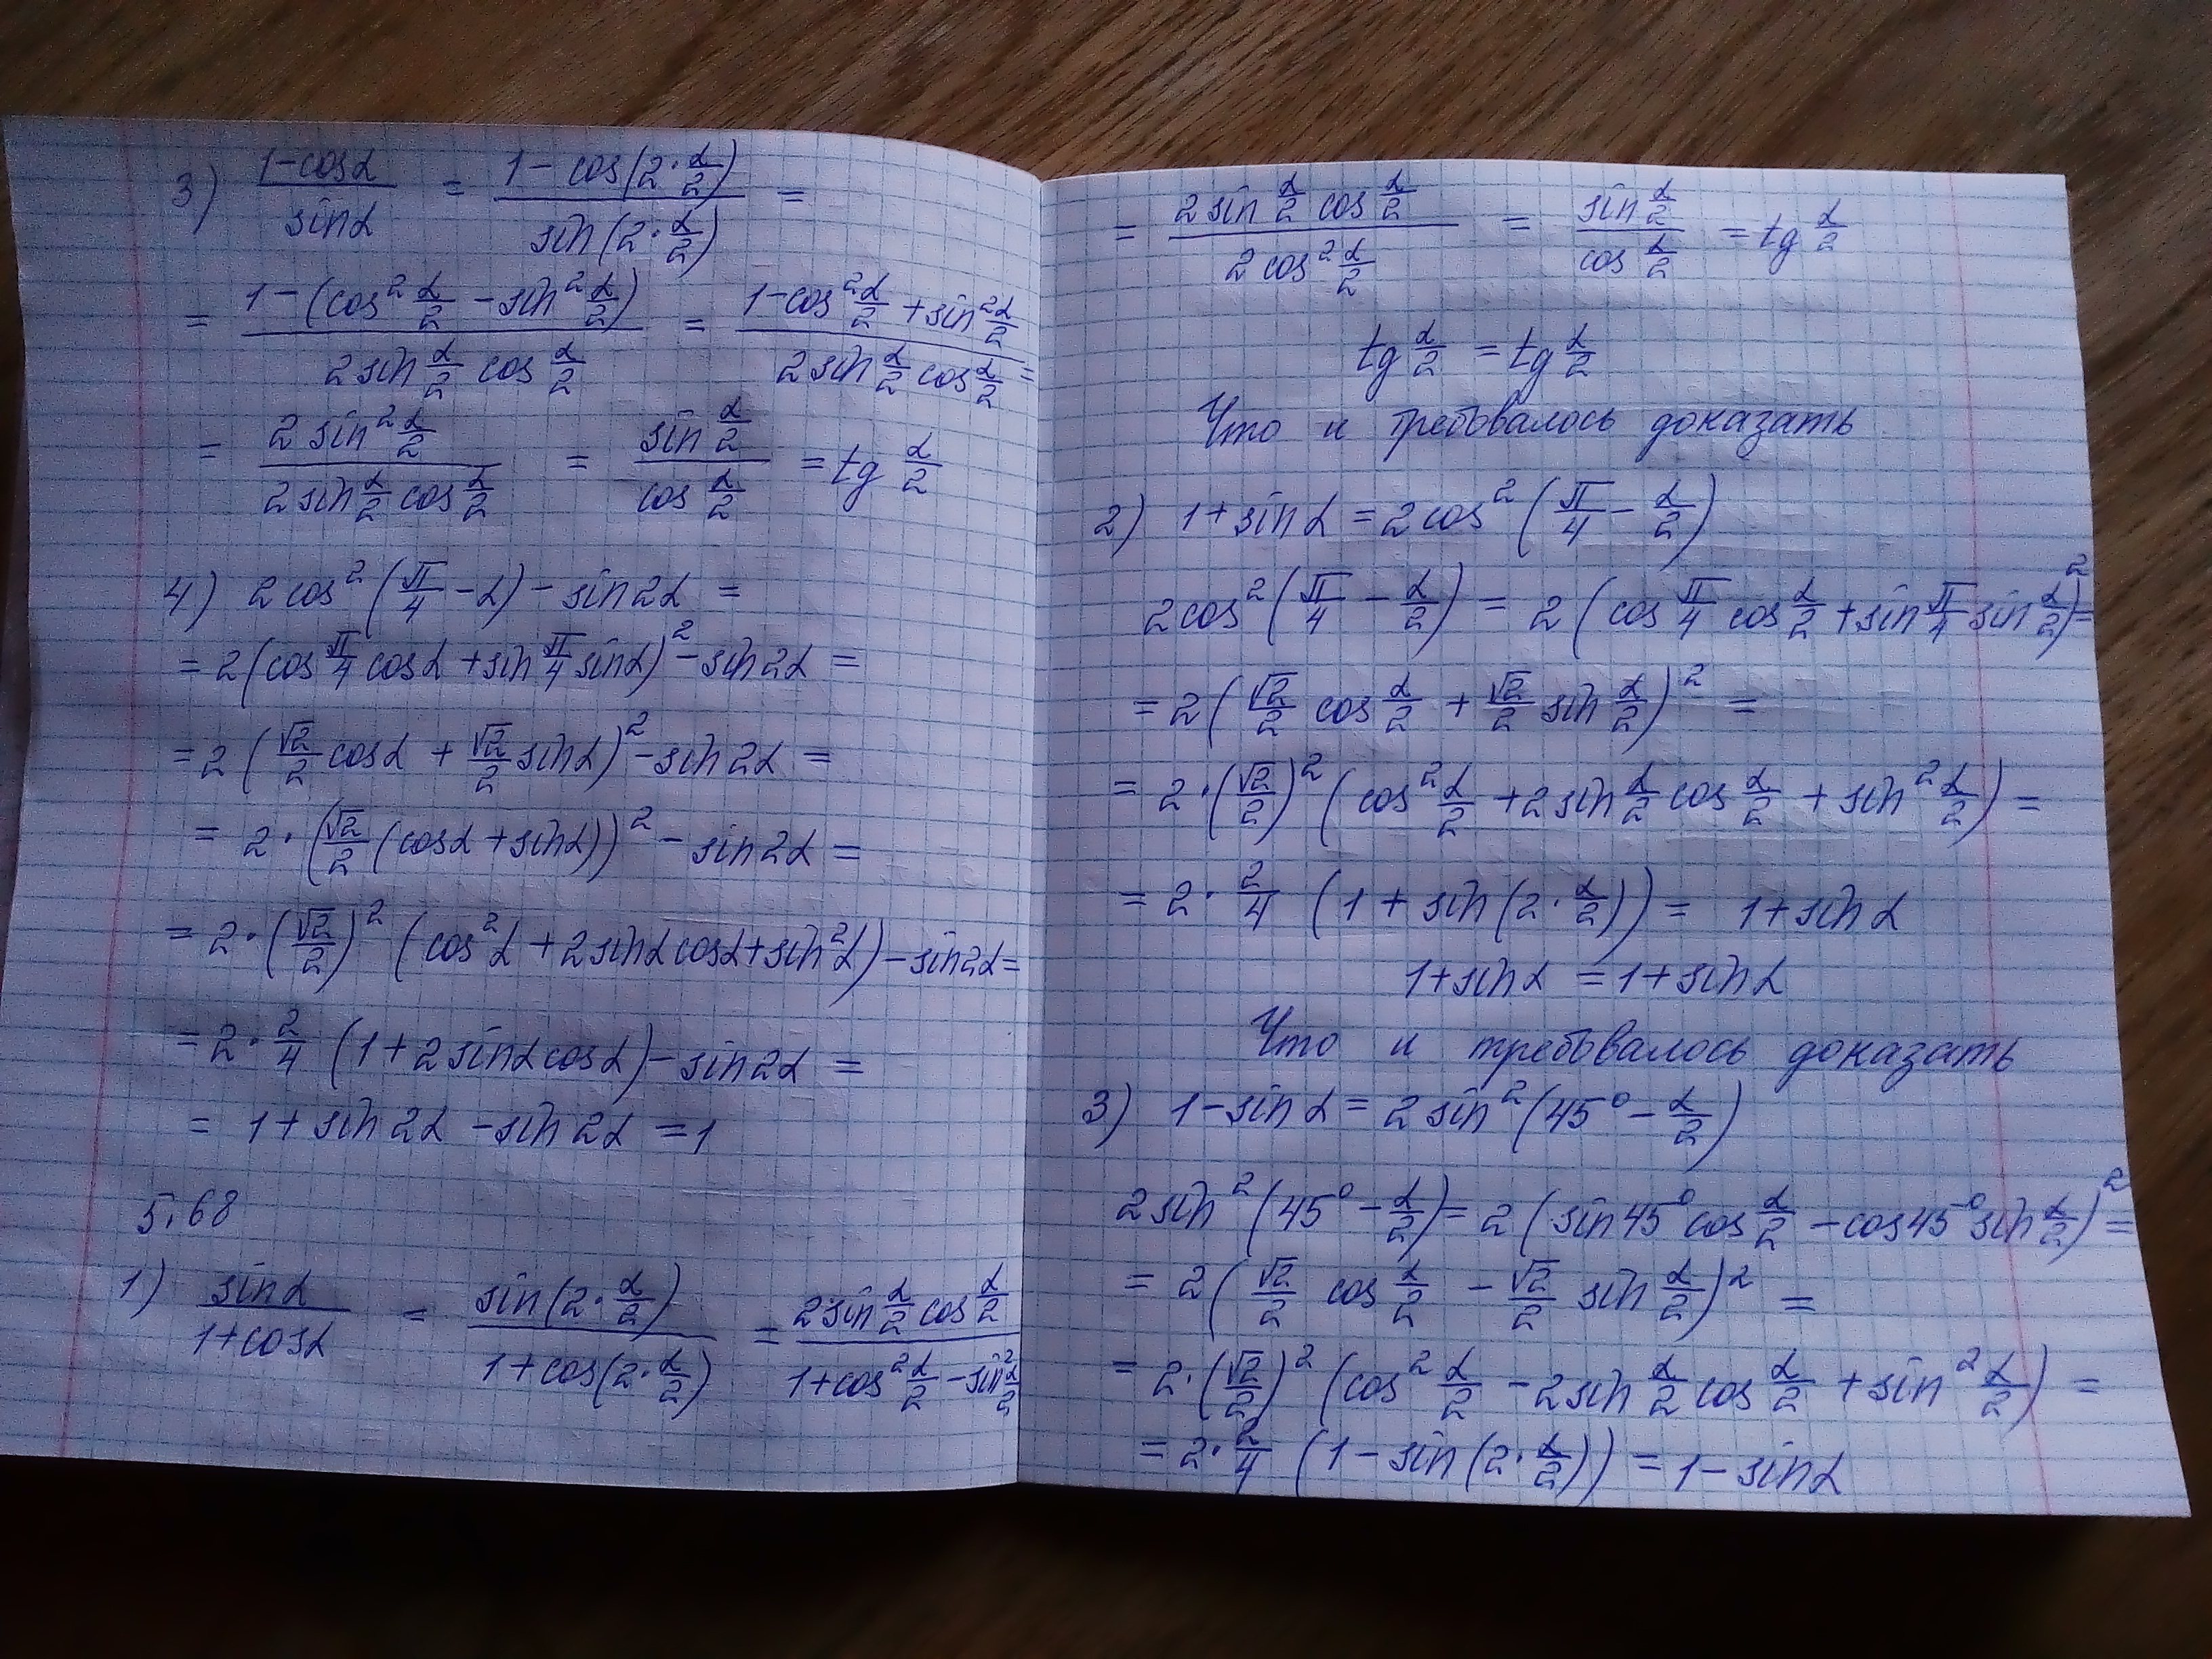 3) (1-cosα)/(sinα) = (1 - cos(2·α/2))/(sin(2·α/2)) =
= (1-(cos²α/2 - sin²α/2))/(2sin α/2 cos α/2) = (1-cos²α/2 + sin²α/2)/(2sin α/2 cos α/2) =
= (2sin²α/2)/(2sin α/2 cos α/2) = (sin α/2)/(cos α/2) = tg α/2
4) 2cos²(π/4 - α) - sin2α =
= 2(cos π/4 cosα + sin π/4 sinα)² - sin2α =
= 2(√2/2 cosα + √2/2 sinα)² - sin2α =
= 2·(√2/2 (cosα + sinα))² - sin2α =
= 2·(√2/2)² (cos²α + 2sinα cosα + sin²α) - sin2α =
= 2·2/4 (1 + 2sinα cosα) - sin2α =
= 1 + sin2α - sin2α = 1
5.68
1) (sinα)/(1+cosα) = (sin(2·α/2))/(1+cos(2·α/2)) = (2sin α/2 cos α/2)/(1+cos²α/2 - sin²α/2)
= (2sin α/2 cos α/2)/(2cos²α/2) = (sin α/2)/(cos α/2) = tg α/2
tg α/2 = tg α/2
Что и требовалось доказать
2) 1+sinα = 2cos²(π/4 - α/2)
2cos²(π/4 - α/2) = 2(cos π/4 cos α/2 + sin π/4 sin α/2)² =
= 2(√2/2 cos α/2 + √2/2 sin α/2)² =
= 2·(√2/2)² (cos²α/2 + 2sin α/2 cos α/2 + sin²α/2) =
= 2·2/4 (1 + sin(2·α/2)) = 1+sinα
1+sinα = 1+sinα
Что и требовалось доказать
3) 1-sinα = 2sin²(45° - α/2)
2sin²(45° - α/2) = 2(sin45° cos α/2 - cos45° sin α/2)² =
= 2(√2/2 cos α/2 - √2/2 sin α/2)² =
= 2·(√2/2)² (cos²α/2 - 2sin α/2 cos α/2 + sin²α/2) =
= 2·2/4 (1-sin(2·α/2)) = 1-sinα